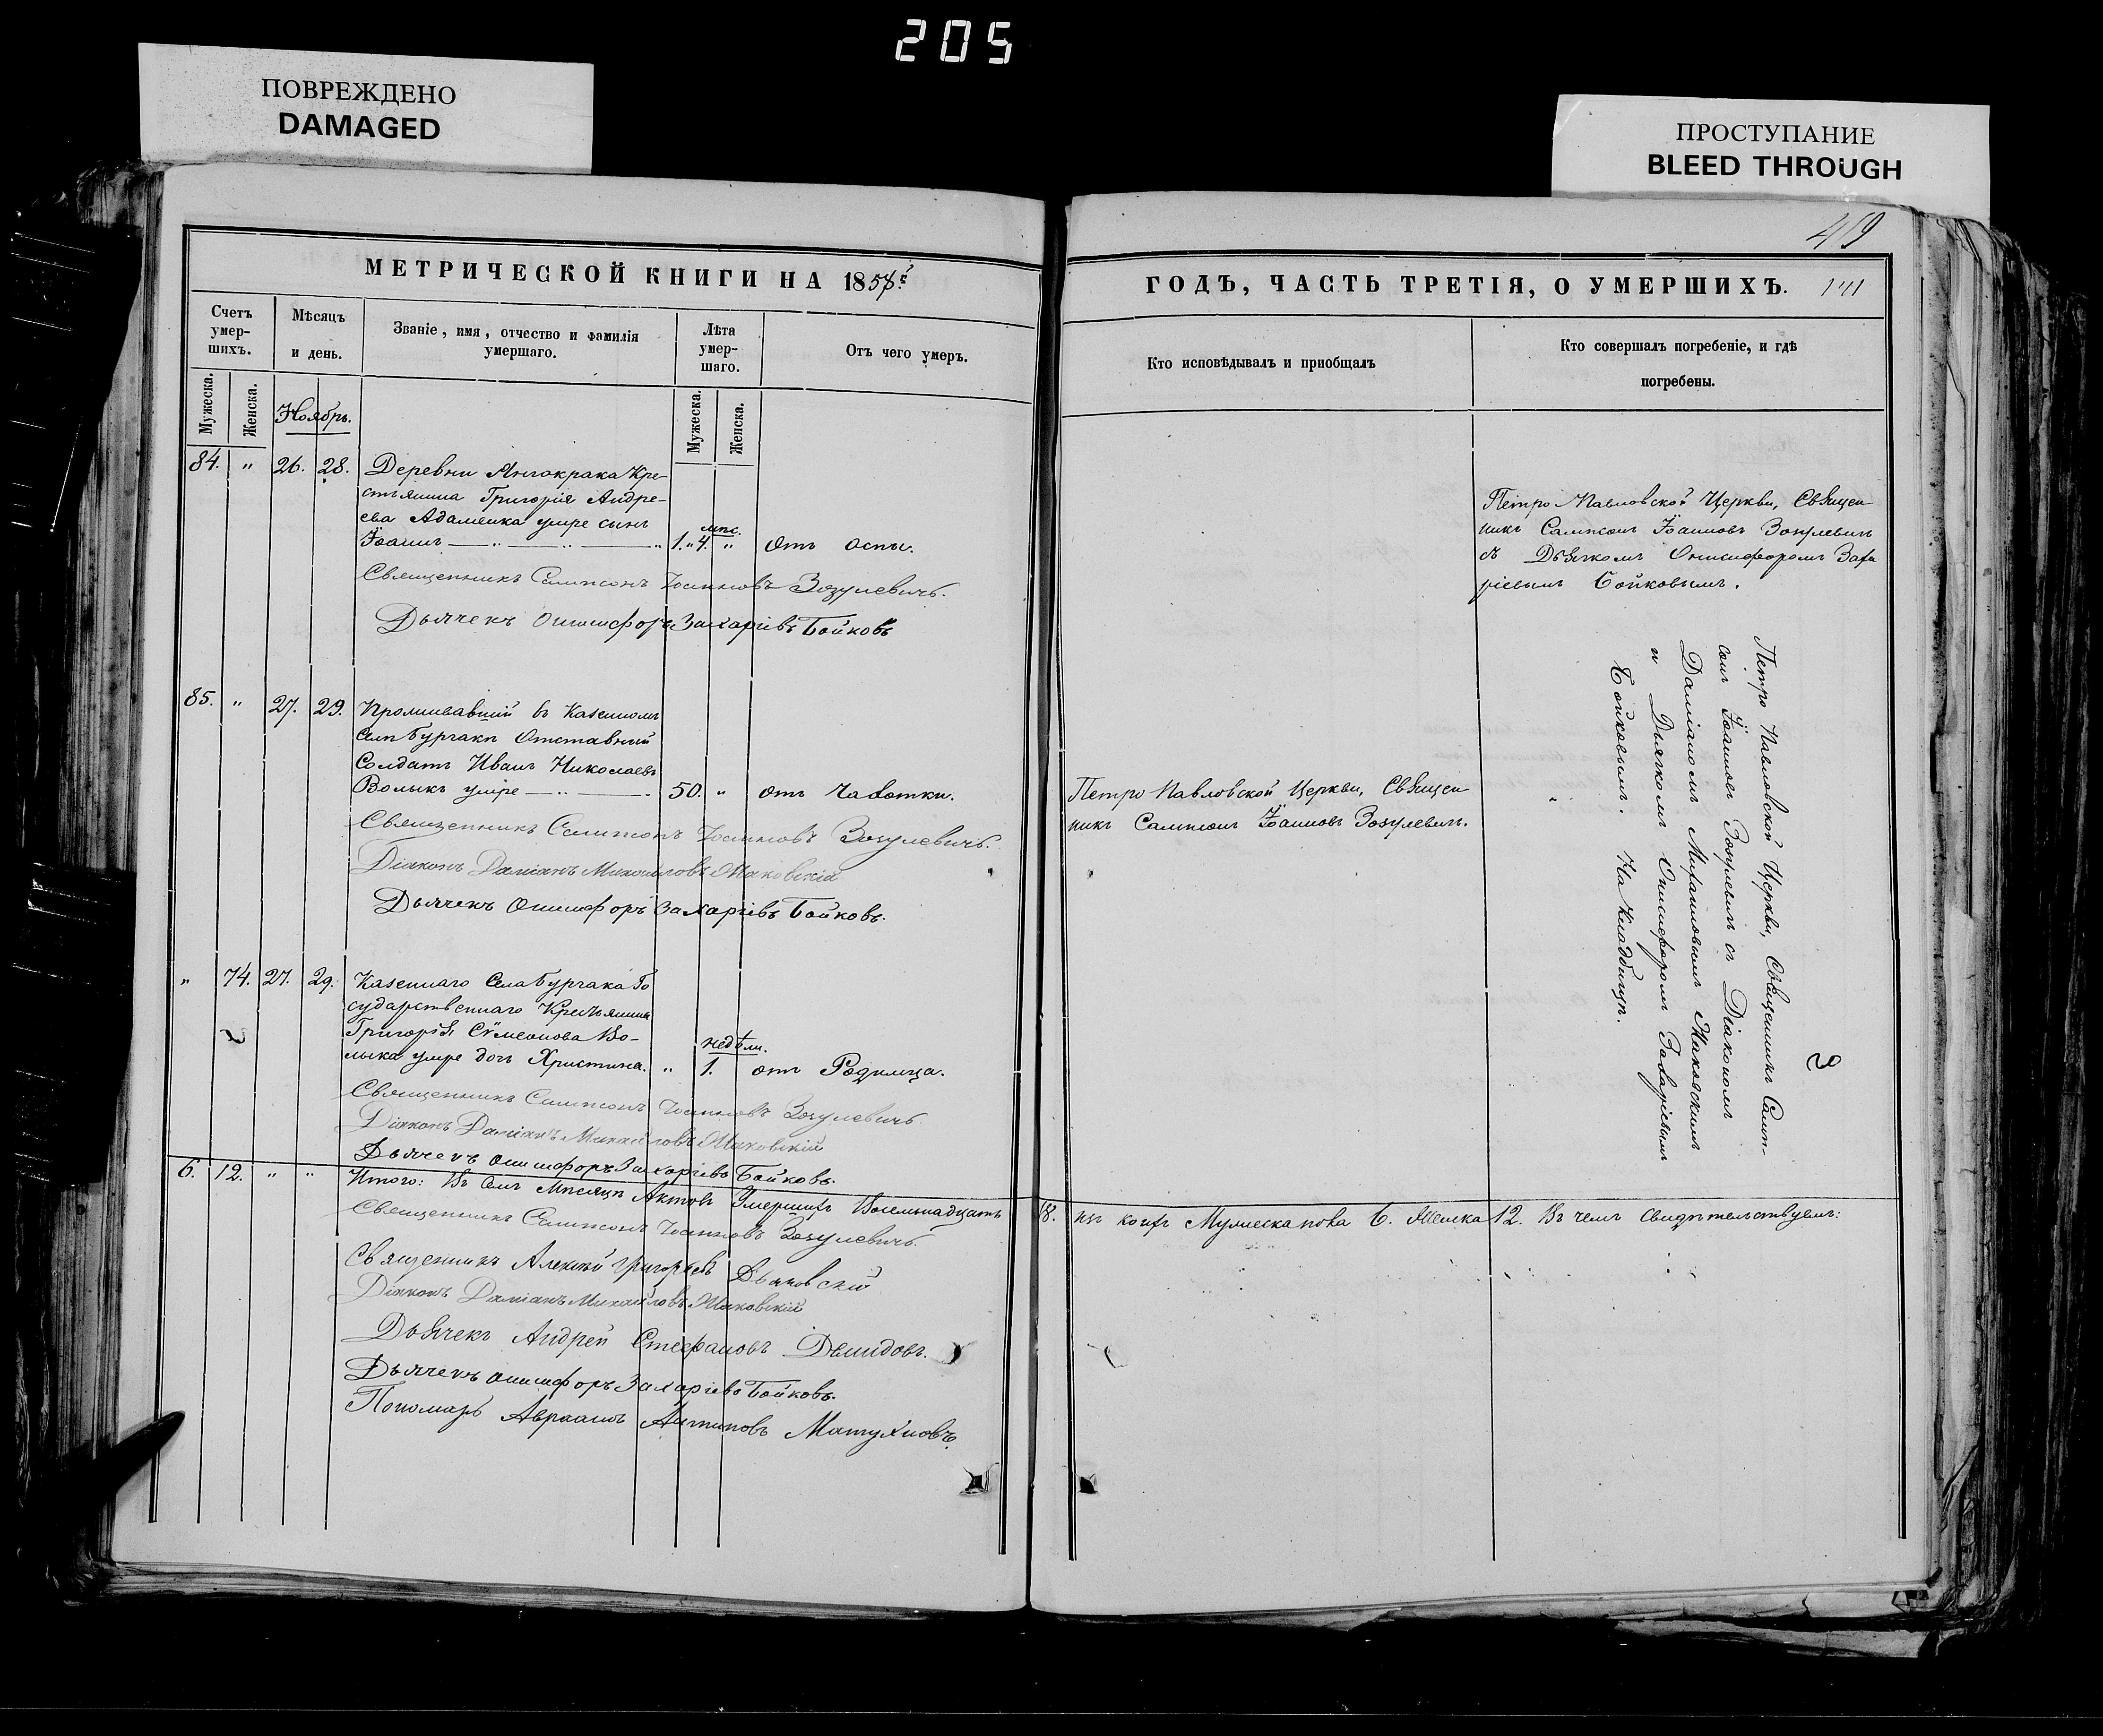 205
ПОВРЕЖДЕНО
DAMAGED
ПРОСТУПАНИЕ
BLEED THROUGH
МЕТРИЧЕСКОЙ КНИГИ НА 185
Счетъ умер-шихъ.
Мѣсяцъ и день.
Званіе, имя, отчество и фамилія умершаго.
Лѣта умер-шаго.
Отъ чего умеръ.
Мужеска.
Женска.
Мужеска.
Женска.
Ноябрь.
84. " 26. 28. Деревни Кре-
стьянина Григорія Андре-
ева Адаменка умре сынъ
Іоаннъ 1. 4. " Отъ оспы.
Священникъ Сампсонъ Іоанновъ Зозулевичъ.
Дьячекъ Онисифоръ Захаріевъ Бойковъ
85. " 27. 29. Проживавшій въ Казенномъ
Селѣ Бургакѣ Отставный
Солдатъ Иванъ Николаевъ
Волыкъ умре 50. " отъ Чахотки.
Священникъ Сампсонъ Іоанновъ Зозулевичъ.
Діаконъ Даміанъ Михайловъ Маковскій
Дьячекъ Онисифоръ Захаріевъ Бойковъ.
" 74. 27. 29. Казеннаго Села Бургака Го
сударственнаго Крестьянина
Григорія Сѵмеонова Во-
лыка умре дочь Христина. " недѣли. 1. отъ Родимца.
Священникъ Сампсонъ Іоанновъ Зозулевичъ.
Діаконъ Даміанъ Михайловъ Маковскій
Дьячекъ Онисифоръ Захаріевъ Бойковъ.
6. 12. " " Итого: Въ Семъ Мѣсяцѣ Актовъ Умершихъ Восемьнадцать
Священникъ Сампсонъ Іоанновъ Зозулевичъ.
Священникъ Алексѣй Григорьевъ
Діаконъ Даміанъ Михайловъ Маковскій
Дьячекъ Андрей Стефановъ Демидовъ.
Дьячекъ Онисифоръ Захаріевъ Бойковъ.
Пономарь Авраамъ Антиповъ Матухновъ.
419
ГОДЪ, ЧАСТЬ ТРЕТІЯ, О УМЕРШИХЪ. 141
Кто исповѣдывалъ и пріобщалъ
Кто совершалъ погребеніе, и гдѣ
погребены.
Петро Павловской Церкви, Священ
никъ Сампсонъ Іоанновъ Зозулевичъ
съ Дьячкомъ Онисифоромъ Заха
ріевымъ Бойковымъ.
Петро Павловской Церкви, Священ
никъ Сампсонъ Іоанновъ Зозулевичъ.
"
Петро Павловской Церкви, Священникъ Самп-
сонъ Іоанновъ Зозулевичъ съ Діакономъ
Даміаномъ Михайловымъ Маковскимъ
и Дьячкомъ Онисифоромъ Захаріевымъ
Бойковымъ. На Кладбищѣ.
18. изъ коихъ Мужеска пола 6. Женска 12. Въ чемъ свидѣтельствуемъ: